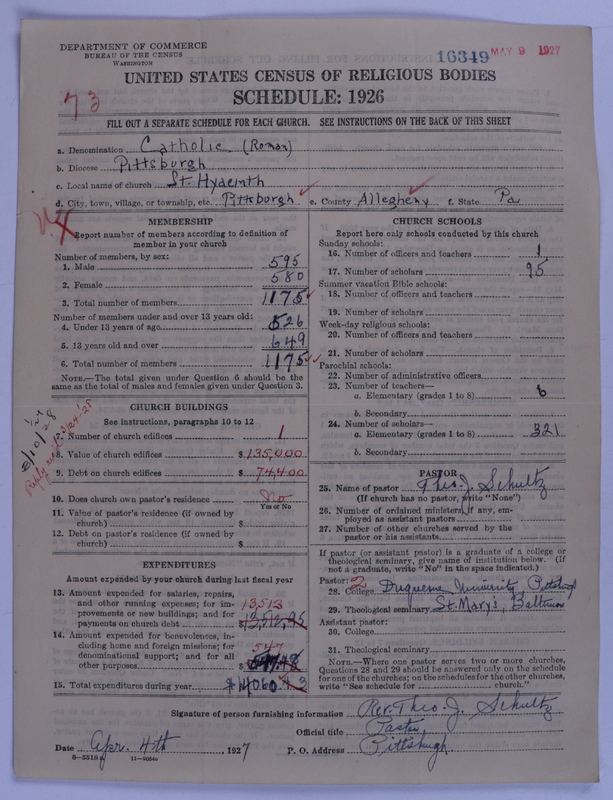 DEPARTMENT OF COMMERCE
BUREAU OF THE CENSUS
WASHINGTON
16349 MAY 9 1927
UNITED STATES CENSUS OF RELIGIOUS BODIES
SCHEDULE: 1926
73
FILL OUT A SEPARATE SCHEDULE FOR EACH CHURCH. SEE INSTRUCTIONS ON THE BACK OF THIS SHEET
a. Denomination Catholic (Roman)
b. Diocese Pittsburgh
c. Local name of church St. Hyacinth
d. City, town, village, or township, etc. Pittsburgh e. County Allegheny f. State Pa
MEMBERSHIP
Report number of members according to definition of
member in your church
Number of members, by sex:
1. Male 595
2. Female 580
3. Total number of members 1175
Number of members under and over 13 years old:
4. Under 13 years of age 526
5. 13 years old and over 649
6. Total number of members 1175
NOTE.—The total given under Question 6 should be the
same as the total of males and females given under Question 3.
CHURCH BUILDINGS
See instructions, paragraphs 10 to 12
7. Number of church edifices 1
8. Value of church edifices $ 135,000
9. Debt on church edifices $ 74,400
10. Does church own pastor's residence No
Yes or No
11. Value of pastor's residence (if owned by
church) $
12. Debt on pastor's residence (if owned by
church) $
EXPENDITURES
Amount expended by your church during last fiscal year
13. Amount expended for salaries, repairs,
and other running expenses; for im-
provements or new buildings; and for
payments on church debt 13,512
$ 13,512.95
14. Amount expended for benevolences, in-
cluding home and foreign missions; for
denominational support; and for all
other purposes 547
$ 547.48
15. Total expenditures during year $ 14060.43
CHURCH SCHOOLS
Report here only schools conducted by this church
Sunday schools:
16. Number of officers and teachers 1
17. Number of scholars 95
Summer vacation Bible schools:
18. Number of officers and teachers
19. Number of scholars
Week-day religious schools:
20. Number of officers and teachers
21. Number of scholars
Parochial schools:
22. Number of administrative officers
23. Number of teachers—
a. Elementary (grades 1 to 8) 6
b. Secondary
24. Number of scholars—
a. Elementary (grades 1 to 8) 321
b. Secondary
PASTOR
25. Name of pastor Theo. J. Schultz
(If church has no pastor, write "None")
26. Number of ordained ministers, if any, em-
ployed as assistant pastors
27. Number of other churches served by the
pastor or his assistants
If pastor (or assistant pastor) is a graduate of a college or
theological seminary, give name of institution below. (If
not a graduate, write "No" in the space indicated.)
Pastor: 2
28. College Duquesne University Pittsburgh
29. Theological seminary St. Mary's, Baltimore
Assistant pastor:
30. College
31. Theological seminary
NOTE.—Where one pastor serves two or more churches,
Questions 28 and 29 should be answered only on the schedule
for one of the churches; on the schedules for the other churches,
write "See schedule for church."
Signature of person furnishing information Rev. Theo. J. Schultz
Official title Pastor
Date Apr. 4th, 1927 P. O. Address Pittsburgh
8-5518a 11-9054a